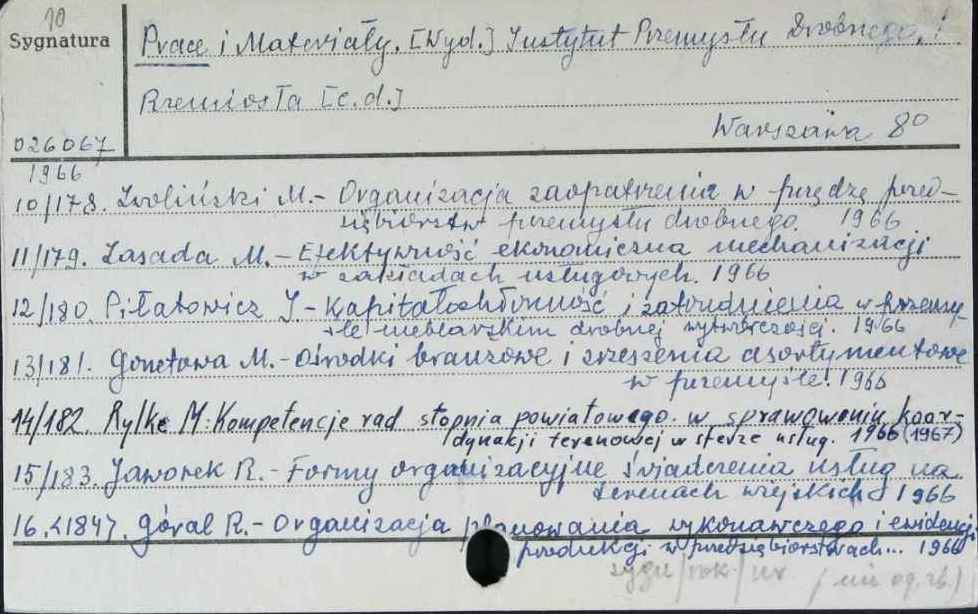 10
Sygnatura
Prace i Materiały. [Wyd.] Instytut Przemysłu Drobnego i
Rzemiosła [c.d.]
Warszawa 80
026067
1966
10/178. Zwoliński M.- Organizacja zaopatrzenia w przędzę przed-
siębiorstw przemysłu drobnego. 1966
11/179. Zasada M.- Efektywność ekonomiczna mechanizacji
w zakładach usługowych. 1966
12/180. Piłatowicz J- Kapitałochłonność i zatrudnienia w przemy-
śle meblarskim drobnej wytwórczości. 1966
13/181. Gonetowa M.- Ośrodki branżowe i zrzeszenia asortymentowe
w przemyśle. 1966
14/182. Rylke M: Kompetencje rad stopnia powiatowego w sprawowaniu koor-
dynacji terenowej w sferze usług. 1966 (1967)
15/183. Jaworek R.- Formy organizacyjne świadczenia usług na
terenach wiejskich 1966
16 <184>. Góral R.- Organizacja planowania wykonawczego i ewidencji
produkcji w przedsiębiorstwach... 1966
sygn/rok/nr